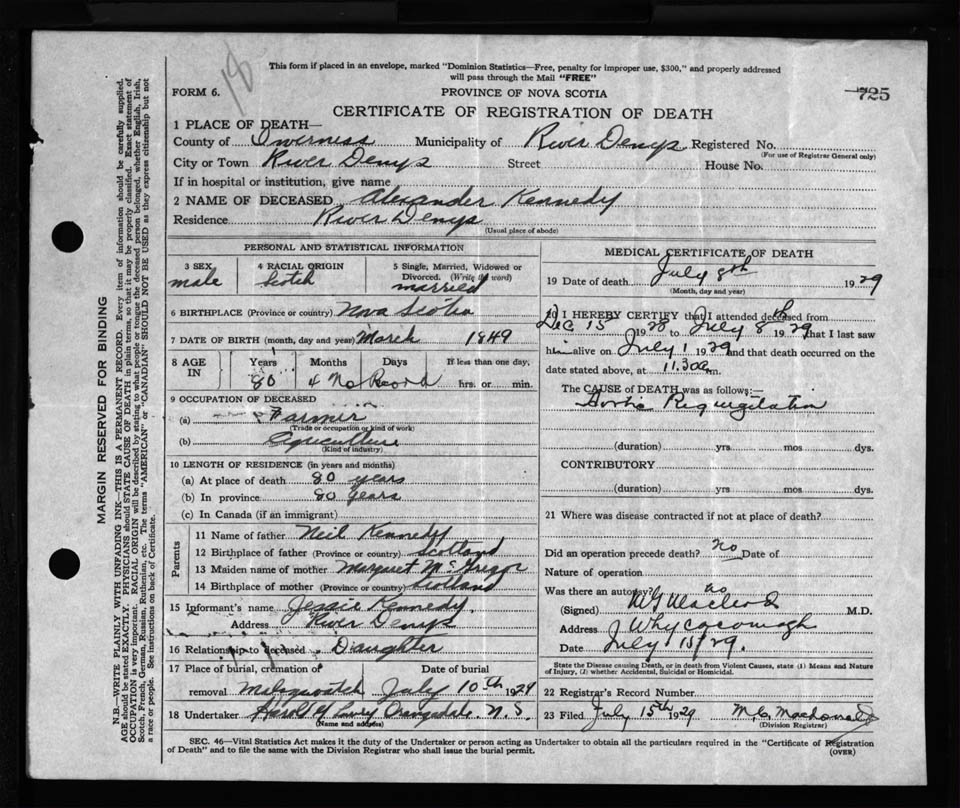 18
This form if placed in an envelope, marked "Dominion Statistics—Free, penalty for improper use, $300," and properly addressed
will pass through the Mail "FREE"
725
FORM 6.
PROVINCE OF NOVA SCOTIA
CERTIFICATE OF REGISTRATION OF DEATH
1 PLACE OF DEATH—
County of Inverness Municipality of River Denys Registered No.
(For use of Registrar General only)
City or Town River Denys Street House No.
If in hospital or institution, give name
2 NAME OF DECEASED Alexander Kennedy
Residence River Denys
(Usual place of abode)
PERSONAL AND STATISTICAL INFORMATION
3 SEX male
4 RACIAL ORIGIN Scotch
5 Single, Married, Widowed or
Divorced. (Write the word)
married
6 BIRTHPLACE (Province or country) Nova Scotia
7 DATE OF BIRTH (month, day and year) March 1849
8 AGE IN
Years Months Days If less than one day,
80 4 No Record hrs. or min.
9 OCCUPATION OF DECEASED
(a) Farmer
(Trade or occupation or kind of work)
(b) Agriculture
(Kind of industry)
10 LENGTH OF RESIDENCE (in years and months)
(a) At place of death 80 years
(b) In province 80 years
(c) In Canada (if an immigrant)
Parents
11 Name of father Neil Kennedy
12 Birthplace of father (Province or country) Scotland
13 Maiden name of mother Margaret McGregor
14 Birthplace of mother (Province or country) Scotland
15 Informant's name Jessie Kennedy
Address River Denys
16 Relationship to deceased Daughter
17 Place of burial, cremation or Date of burial
removal Malagawatch July 10th 1929
18 Undertaker Harold Orangedale N.S.
(Name and address)
MEDICAL CERTIFICATE OF DEATH
19 Date of death July 8th 1929
(Month, day and year)
20 I HEREBY CERTIFY that I attended deceased from
Dec 15 1928 to July 8th 1929 that I last saw
him alive on July 1 1929 and that death occurred on the
date stated above, at 11.30 a m.
The CAUSE of DEATH was as follows:—
Aortic Regurgitation
(duration) yrs mos dys.
CONTRIBUTORY
(duration) yrs mos dys.
21 Where was disease contracted if not at place of death?
Did an operation precede death? no Date of
Nature of operation
Was there an autopsy? no
(Signed) MacLeod M.D.
Address Whycocomagh
Date July 15/29.
State the Disease causing Death, or in death from Violent Causes, state (1) Means and Nature
of Injury, (2) whether Accidental, Suicidal or Homicidal.
22 Registrar's Record Number
23 Filed July 15th 1929 Macdonald
(Division Registrar)
SEC. 46—Vital Statistics Act makes it the duty of the Undertaker or person acting as Undertaker to obtain all the particulars required in the "Certificate of Registration
of Death" and to file the same with the Division Registrar who shall issue the burial permit.
(OVER)
MARGIN RESERVED FOR BINDING
N.B.—WRITE PLAINLY WITH UNFADING INK—THIS IS A PERMANENT RECORD. Every item of information should be carefully supplied.
AGE should be stated EXACTLY. PHYSICIANS should STATE CAUSE OF DEATH in plain terms, so that it may be properly classified. Exact statement of
OCCUPATION is very important. RACIAL ORIGIN will be described by stating to what people or tongue the deceased person belonged, whether English, Irish,
Scotch, French, German, Russian, Ruthenian, etc. The terms "AMERICAN" or "CANADIAN" SHOULD NOT BE USED as they express citizenship but not
a race or people. See instructions on back of Certificate.